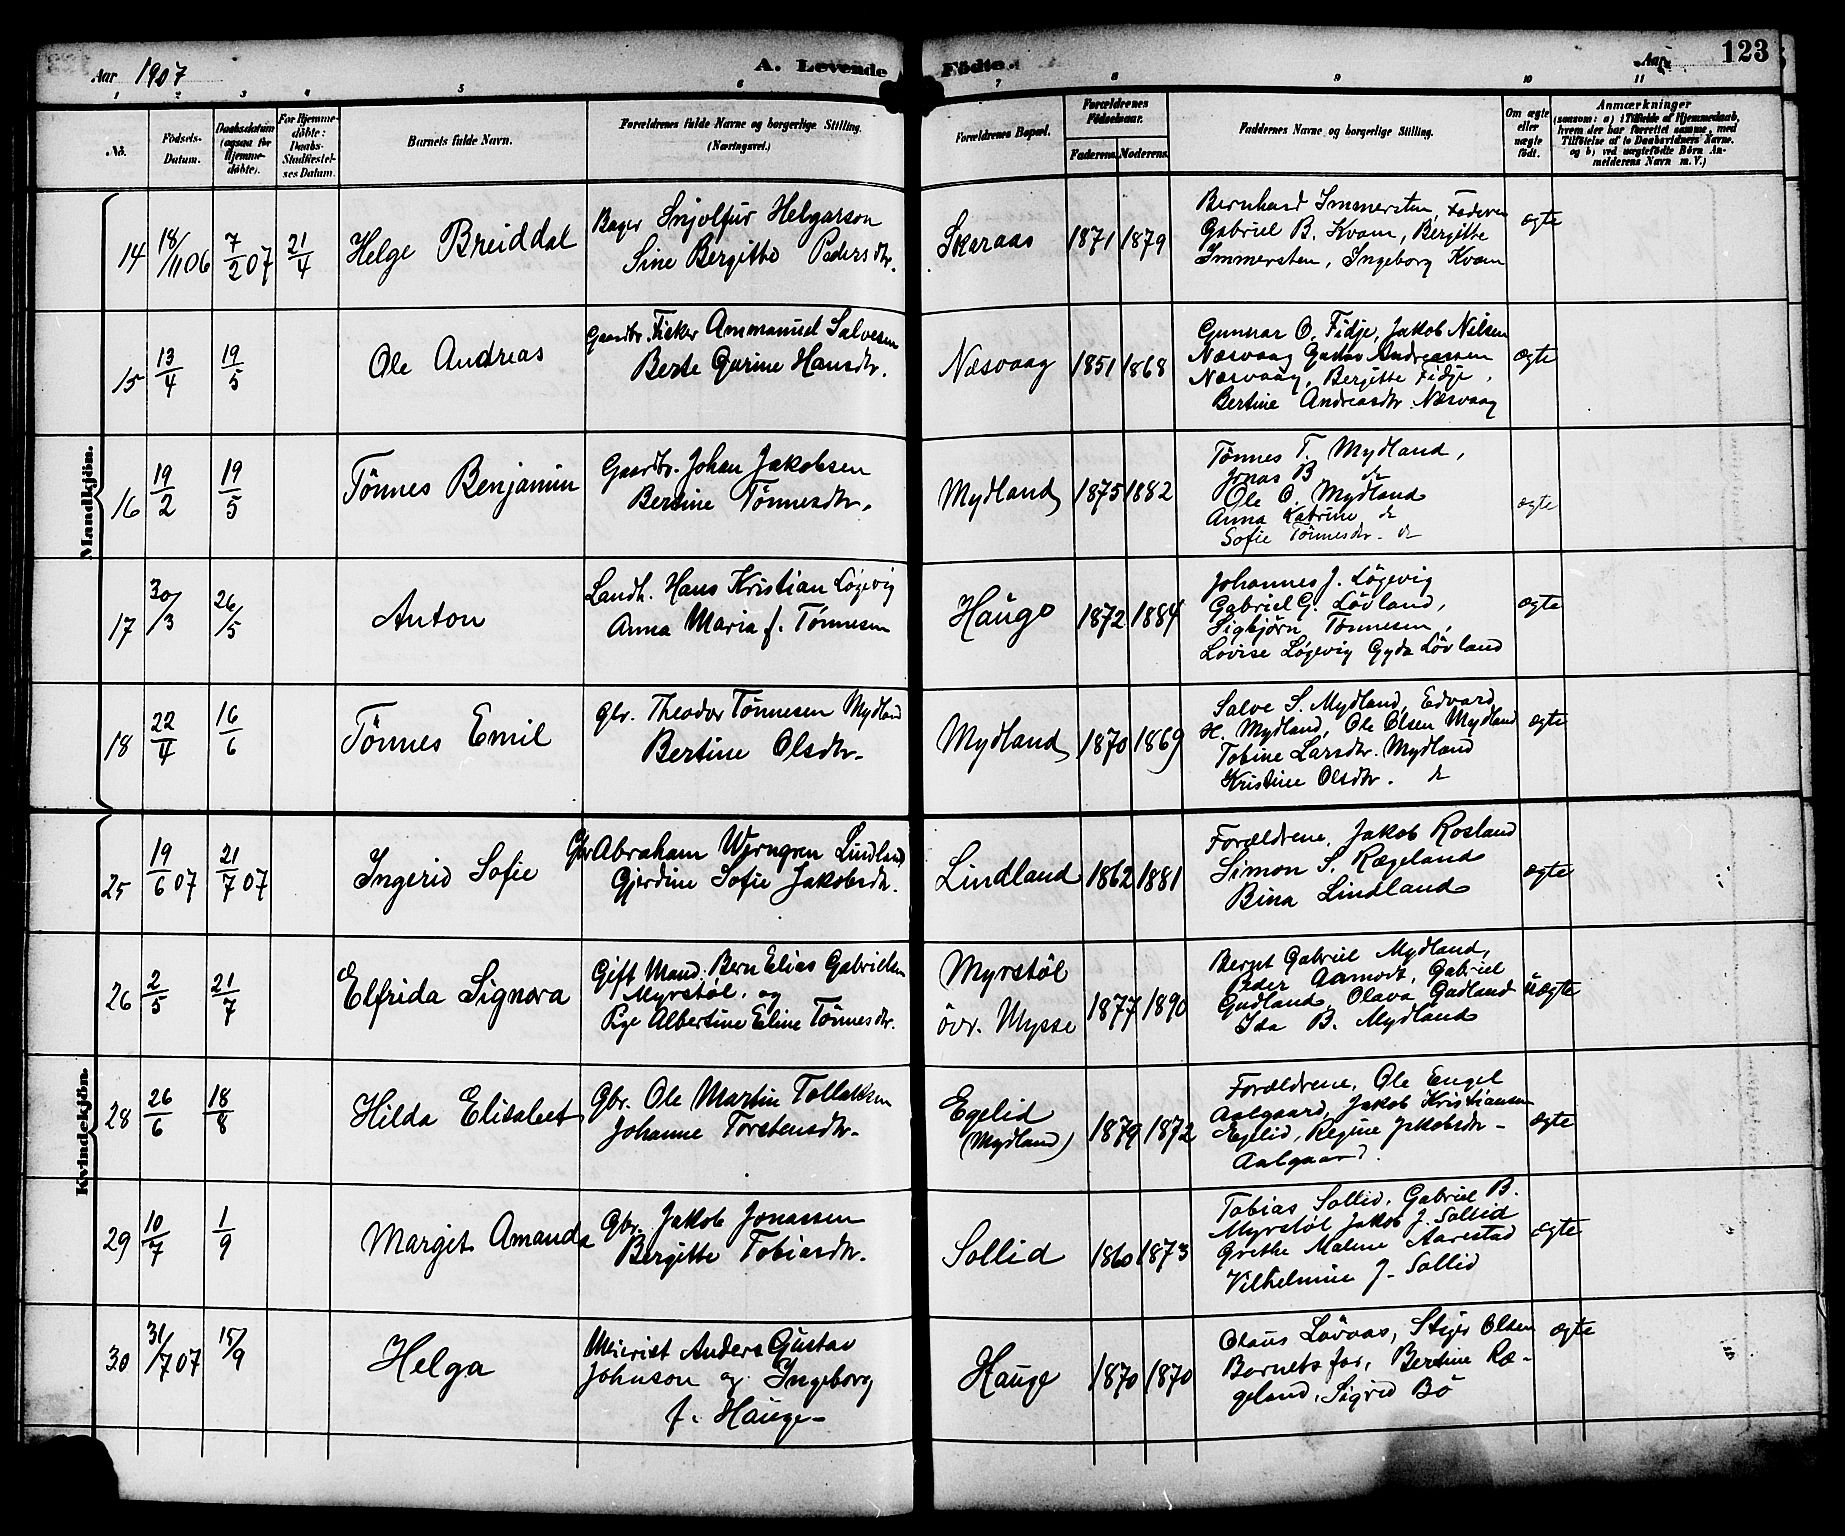 Aar 1907
A. Levende Födte.
Aar
123
1 2 3 4 5 6 7 8 9 10 11
No.
Födsels-Datum.
Daabsdatum (ogsaa for Hjemme-döbte).
For Hjemme-döbte: Daabs-Stadfæstel-ses Datum.
Barnets fulde Navn.
Forældrenes fulde Navne og borgerlige Stilling.
(Næringsvei.)
Forældrenes Bopæl.
Forældrenes Födselsaar.
Faderens. Moderens.
Faddernes Navne og borgerlige Stilling.
Om ægte eller uægte födt.
Anmærkninger
(saasom: a) i Tilfælde af Hjemmedaab,
hvem der har forrettet samme, med
Tilföielse af to Daabsvidners Navne.
og b) ved uægtefödte Börn An-
melderens Navn m. V.)
Mandkjön.
14 18/11 06 7/2 07 21/4 Helge Breiddal
Bager Snjolfur Helgarson
Sine Bergitte Pedersdtr.
Skaraas 1871 1879
Bernhard Immersten, Faderen
Gabriel B. Kvam, Bergitte
Immersten, Ingeborg Kvam
ægte
15 13/4 19/5 Ole Andreas
Gaardbr. Fisker Ammanuel Salvesen
Berte Gurine Hansdtr.
Næsvaag 1851 1868
Gunnar O. Fidje, Jakob Nilsen
Næsvaag Gustav Andreassen
Næsvaag, Bergitte Fidje,
Bertine Andreasdtr. Næsvaag
ægte
16 19/2 19/5 Tönnes Benjamin
Gaardbr. Johan Jakobsen
Bertine Tönnesdtr.
Mydland 1875 1882
Tönnes T. Mydland,
Jonas B do
Ole O. Mydland
Anna Katrine do
Sofie Tönnesdtr. do
ægte
17 30/3 26/5 Anton
Landh. Hans Kristian Lögevig
Anna Maria f. Tönnesen
Hauge 1872 1884
Johannes J. Lögevig
Gabriel G. Lövland,
Sigbjörn Tönnesen,
Lovise Lögevig Gyda Lövland
ægte
18 22/4 16/6 Tönnes Emil
Gbr. Theodor Tönnesen Mydland
Bertine Olsdtr.
Mydland 1870 1869
Salve S. Mydland, Edvard
H. Mydland, Ole Olsen Mydland
Tobine Larsdtr. Mydland
Kristine Olsdtr. do
ægte
Kvindekjön.
25 19/6 07 21/7 07 Ingerid Sofie
Gbr Abraham Werngren Lindland
Gjerdine Sofie Jakobsdtr.
Lindland 1862 1881
Forældrene, Jakob Rosland
Simon S. Rægeland
Bina Lindland
ægte
26 2/5 21/7 Elfrida Signora
Gift Mand. Bern Elias Gabrielsen
Myrstöl. og
Pige Albertine Eline Tönnesdtr.
Myrstöl
övr. Mysse
1877 1890
Bernt Gabriel Mydland,
Peder Aamodt, Gabriel
Gudland, Olava Gudland
Ida B. Mydland
uægte
28 26/6 18/8 Hilda Elisabet
Gbr. Ole Martin Tollaksen
Johanne Torstensdtr.
Egelid
(Mydland)
1879 1872
Forældrene, Ole Engel
Aalgaard, Jakob Kristiansen
Egelid, Regine Jakobsdtr
Aalgaard.
ægte
29 10/7 1/9 Margit Amanda
Gbr. Jakob Jonassen
Bergitte Tobiasdtr.
Sollid 1860 1873
Tobias Sollid, Gabriel B.
Myrstöl Jakob J. Sollid
Grethe Maline Aarestad
Vilhelmine J. Sollid
ægte
30 31/7 07 15/9 Helga
Meierist Anders Gustav
Johnson og Ingeborg
f. Hauge
Hauge 1870 1870
Claus Lövaas, Olsen
Barnets far, Bertine Ræ-
geland, Sigrid Bö
ægte